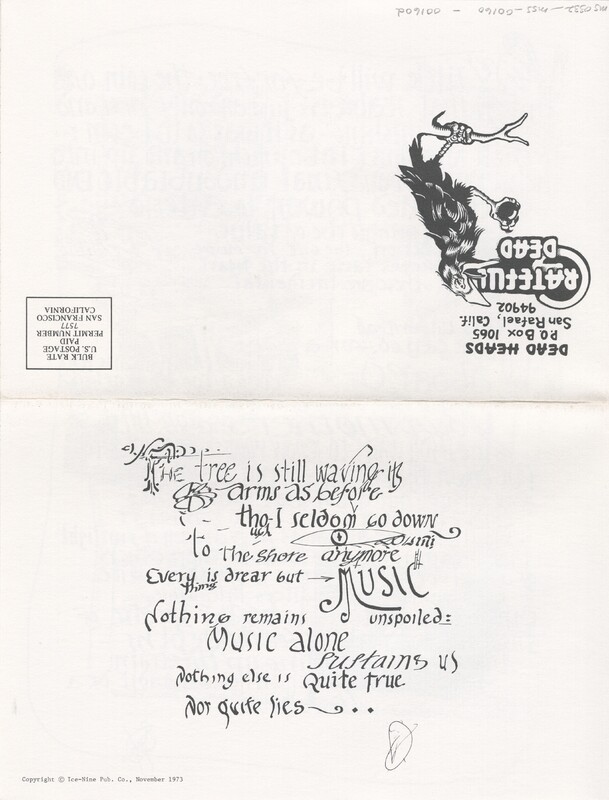 ms0332-mss-00160 - 00160d
GRATEFUL
DEAD
DEAD HEADS
P.O. Box 1065
San Rafael, Calif.
94902
BULK RATE
U.S. POSTAGE
PAID
PERMIT NUMBER
7577
SAN FRANCISCO
CALIFORNIA
The tree is still waving its
arms as before
tho I seldom go down
to the shore anymore
Every thing is drear but → Music
Nothing remains unspoiled:
Music alone
sustains us
Nothing else is Quite true
Nor quite lies
Copyright © Ice-Nine Pub. Co., November 1973